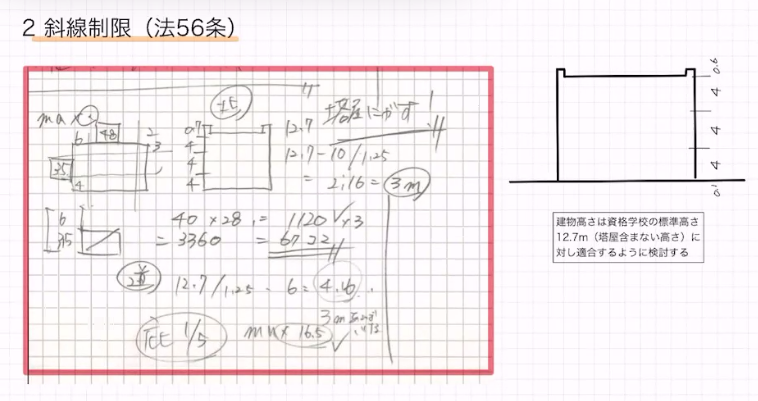 2 斜線制限（法56条）
max
48
6
2
3
35
4
北
0.7
4
4
4
12.7
塔屋にがす!
12.7-10/1.25
= 2.16 = 3m
6
35
40×28 = 1120 ×3
= 3360 = 6722
道 12.7/1.25 - 6 = 4.16
1/5 max 16.5
3m
0.6
4
4
4
0.1
建物高さは資格学校の標準高さ
12.7m（塔屋含まない高さ）に
対し適合するように検討する